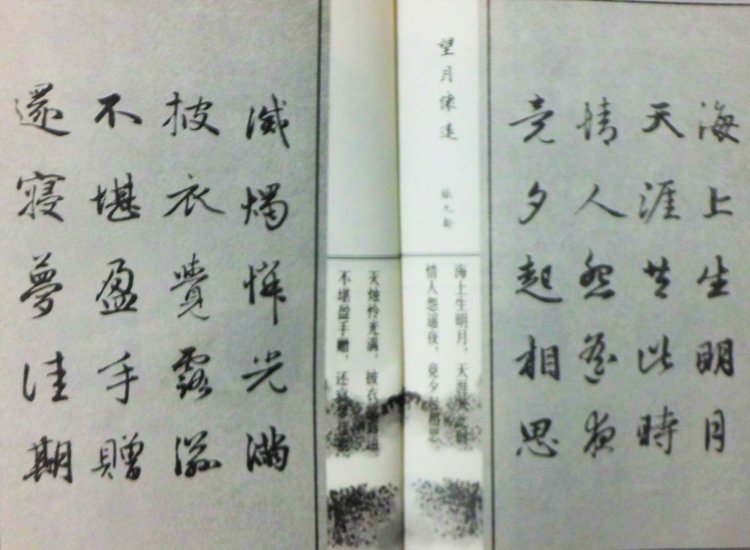 海上生明月
天涯共此時
情人怨遙夜
竟夕起相思
望月懷遠
張九齡
海上生明月，天涯共此時
情人怨遥夜，竟夕起相思
灭烛怜光满，披衣
不堪盈手赠，还寝
滅燭憐光滿
披衣覺露滋
不堪盈手贈
還寢夢佳期